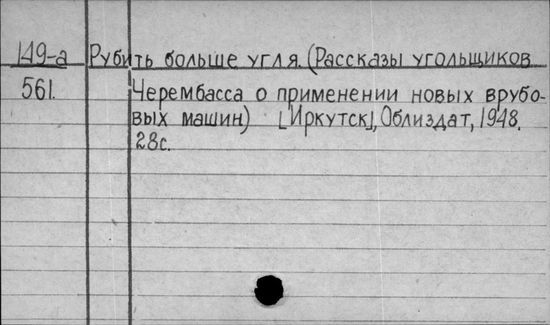 149-а Рубить больше угля. (Рассказы угольщиков
561. Черембасса о применении новых врубо-
вых машин) [Иркутск], Облиздат, 1948.
28с.